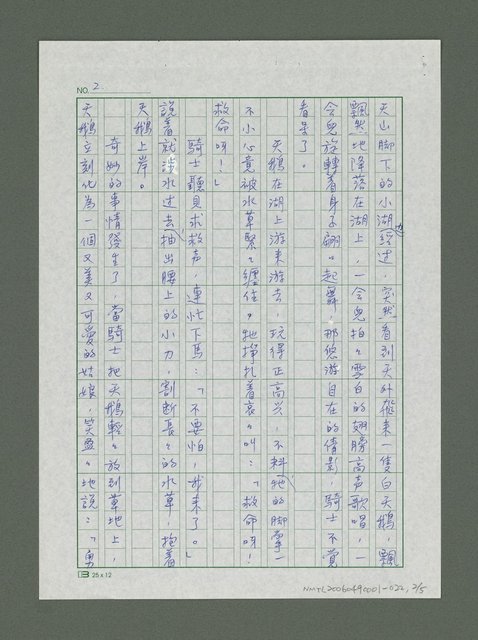 NO. 2
天山脚下的小湖邊經过，突然，看到天外飛來一隻白天鵝，飄
飄然地降落在湖上，一会兒拍々雪白的翅膀高声歌唱，一
会兒旋轉着身子翩々起舞，那悠游自在的倩影，騎士不覚
看呆了。
天鵝在湖上游來游去，玩得正高兴，不料牠的脚掌一
不小心竟被水草緊々纏住。牠掙扎着哀々叫：「救命呀！
救命呀！」
騎士聽見求救声，連忙下馬：「不要怕，我来了。」
說着就涉水过去，抽出腰上的小刀，割断長々的水草，抱着
天鵝上岸。
奇妙的事情發生了，當騎士把天鵝輕々放到草地上，
天鵝立刻化為一個又美又可愛的姑娘，笑盈々地說：「勇
25x12
NMTL20060490001-022, 2/5